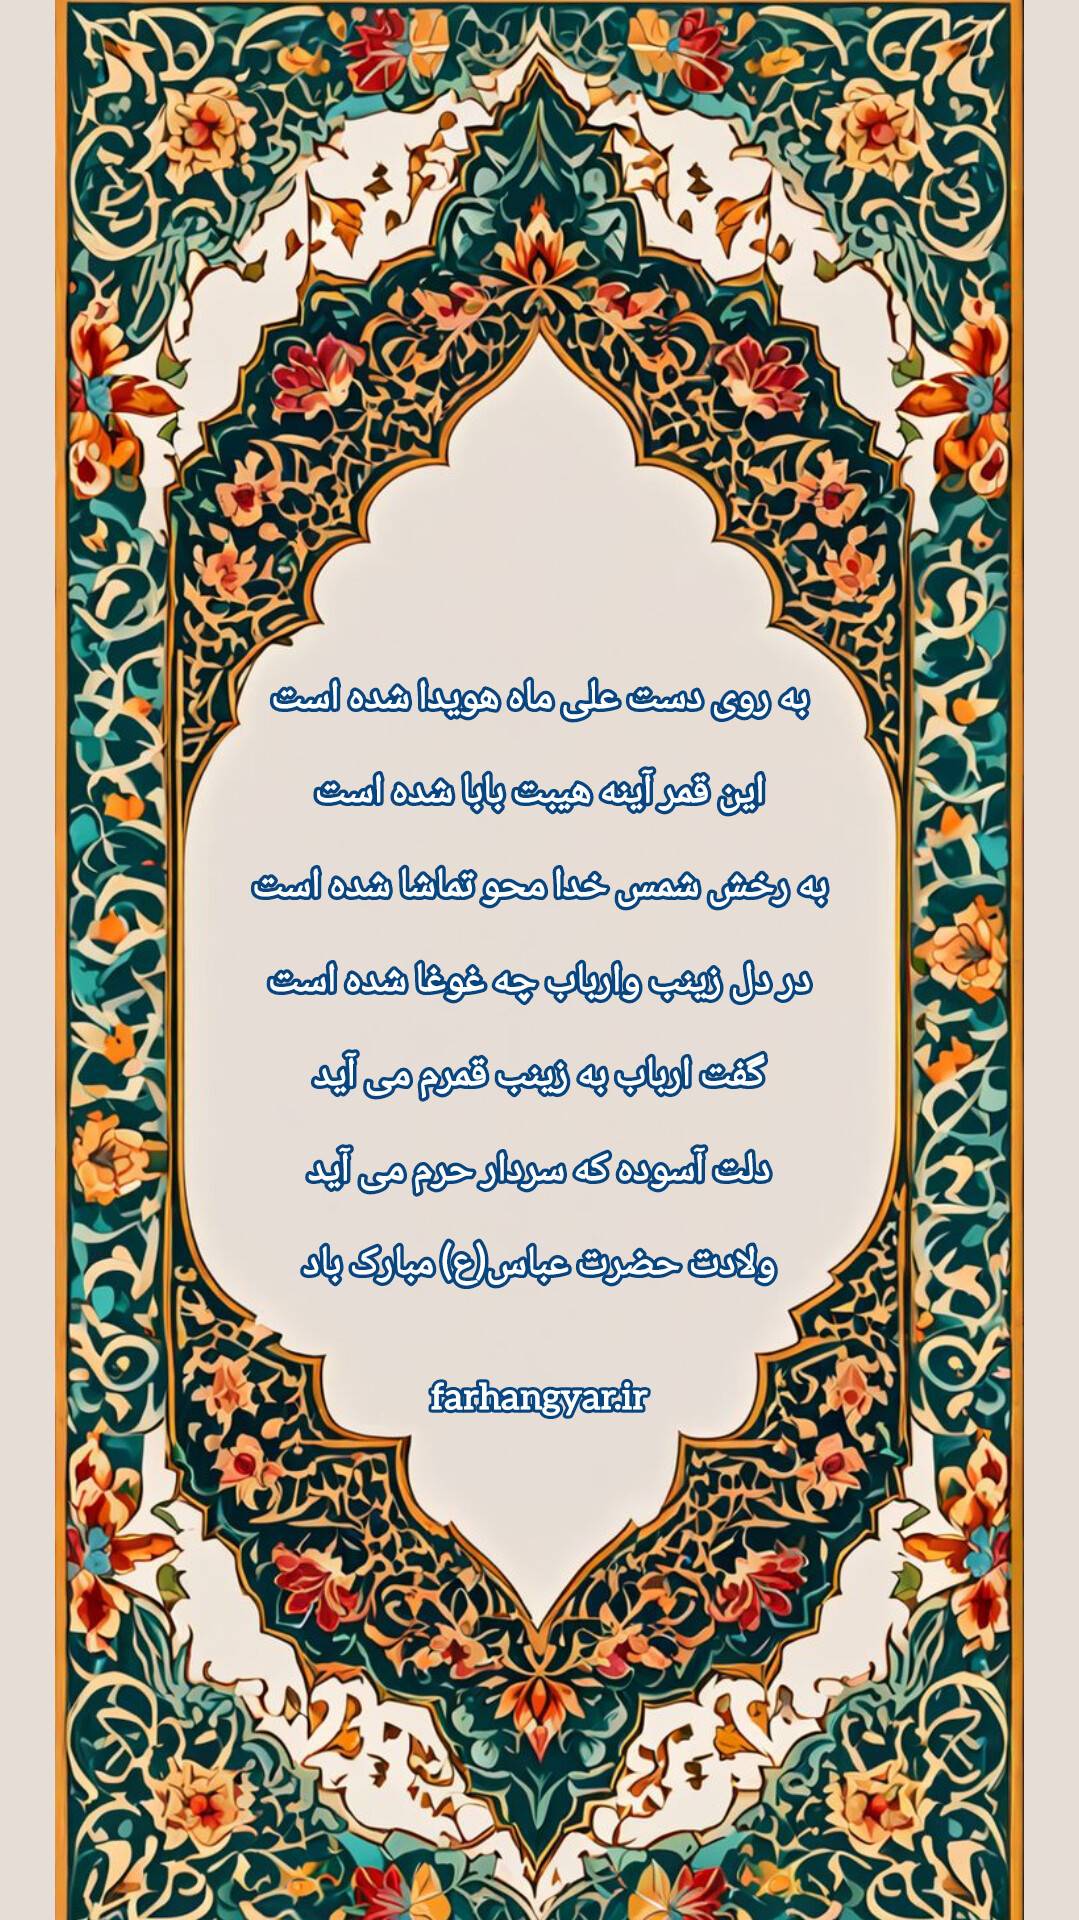 به روی دست علی ماه هویدا شده است
این قمر آینه هیبت بابا شده است
به رخش شمس خدا محو تماشا شده است
در دل زینب وارباب چه غوغا شده است
گفت ارباب به زینب قمرم می آید
دلت آسوده که سردار حرم می آید
ولادت حضرت عباس(ع) مبارک باد
farhangyar.ir